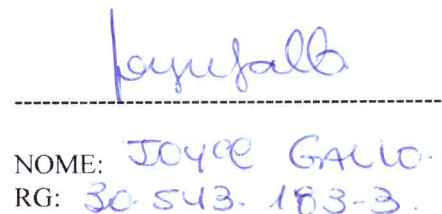 Joyce Gallo
NOME: JOYCE GALLO.
RG: 30.543.183-3.